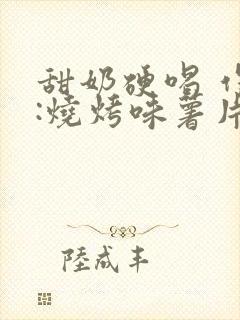 甜奶硬唱
:燒烤味薯片
陸成丰